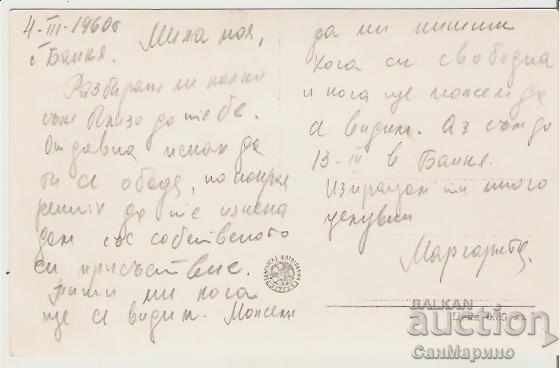 4-III-1960г
с. Банкя.
Мила моя,
Разбираш ли колко
съм близо до тебе.
Отдавна исках да
ти се обадя, но
реших да те изнена
дам със собственото
си присъствие.
Пиши ми кога
ще се видим. Можеш
да ми пишеш
кога си свободна
и кога ще можем да
се видим. Аз съм до
13-III в Банкя.
Изпращам ти много
целувки
Маргарита.
BALKAN
auction
СанМарино